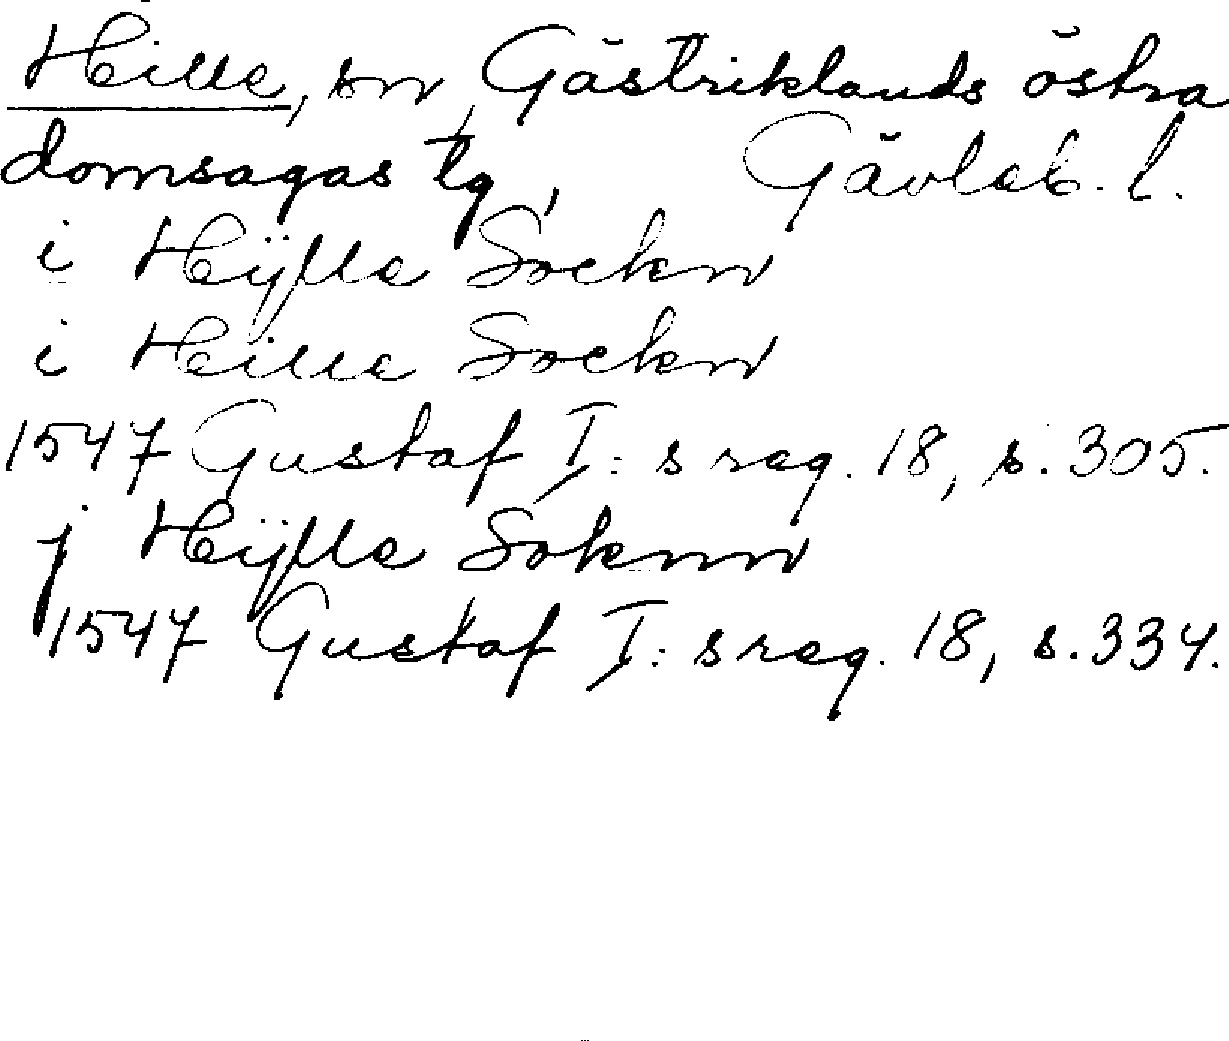 Hille, sn, Gästriklands östra
domsagas tg, Gävleb. l.
i Hÿlle Sockn
i Hille Sockn
1547 Gustaf I: s reg. 18, s. 305.
j Hÿlle Soknn
1547 Gustaf I: s reg. 18, s. 334.